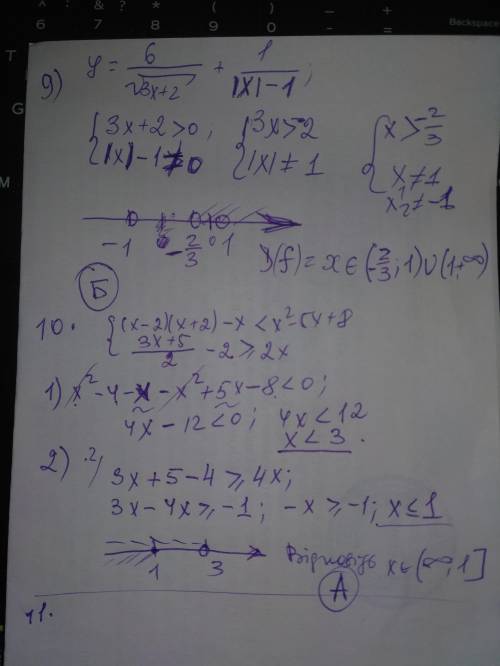 9) y = 6/√(3x+2) + 1/(|x|-1);
{3x+2>0; {3x>-2 {x>-2/3
{|x|-1≠0 {|x|≠1 {x₁≠1
x₂≠-1
-1 -2/3 0 1
D(f)= x∈(-2/3;1)∪(1;∞)
Б
10. {(x-2)(x+2)-x<x²-5x+8
{(3x+5)/2 -2⩾2x
1) x²-4-x-x²+5x-8<0;
4x-12<0; 4x<12
x<3.
2) 3x+5-4⩾4x;
3x-4x⩾-1; -x⩾-1; x≤1
1 3 Відповідь x∈(∞;1]
А
11.